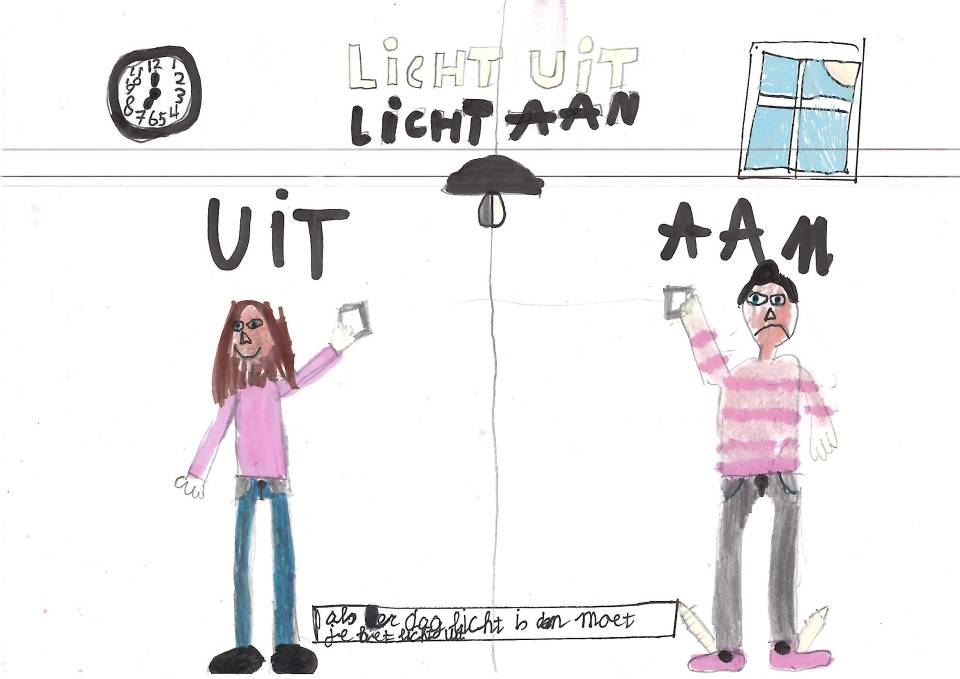 12 1 2 3 4 5 6 7 8 9 10 11
LiCHT UiT
LiCHT AAN
UiT
AAN
als er dag licht is dan moet
je het licht uit